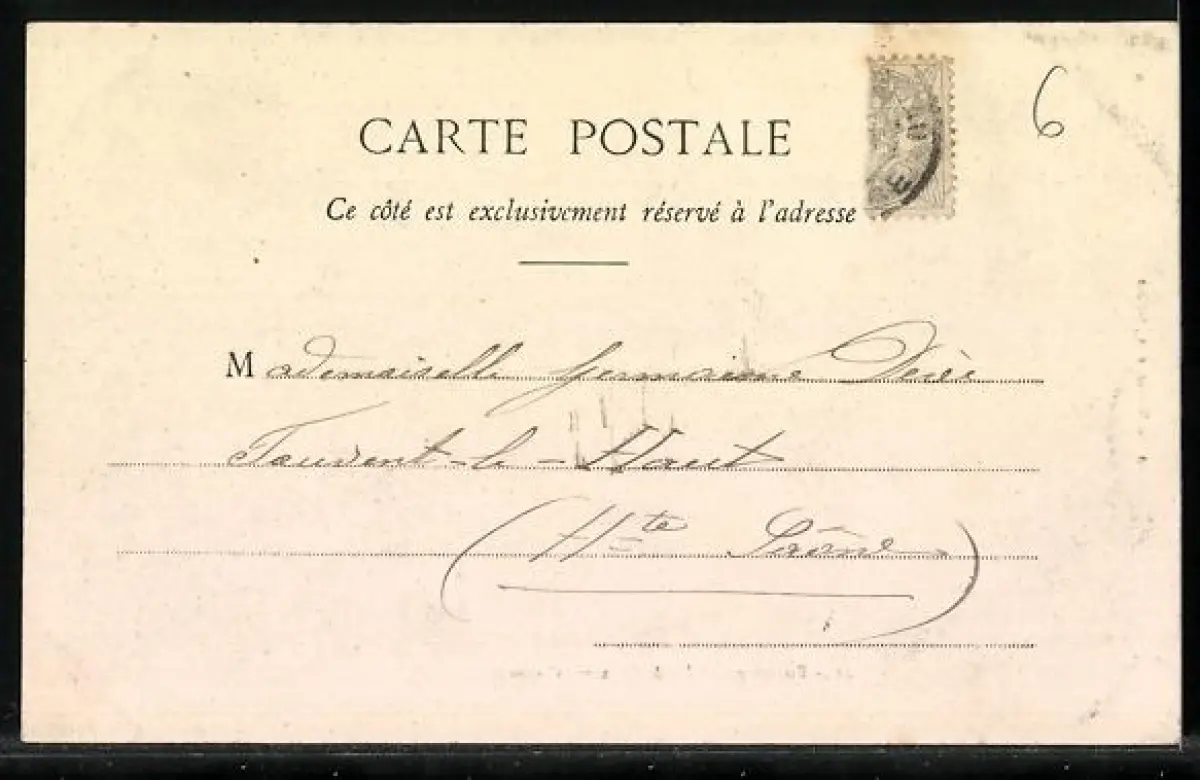 CARTE POSTALE
6
Ce côté est exclusivement réservé à l'adresse
Mademoiselle Germaine
Vauvent-le-Haut
(Hte Saône)